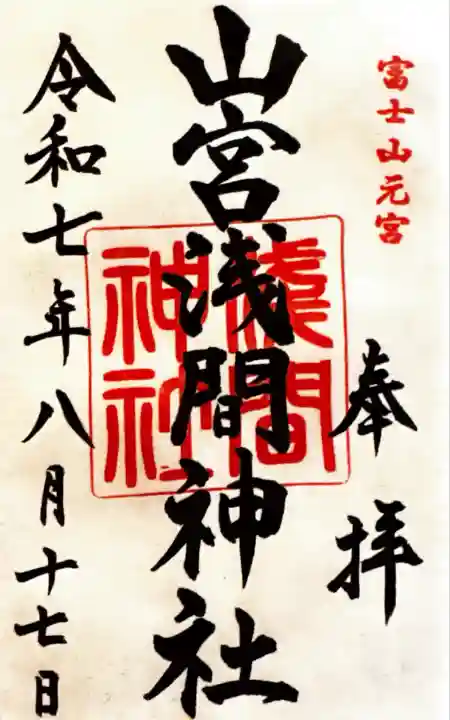 富士山元宮
奉拝
山宮浅間神社
淺間神社
令和七年八月十七日